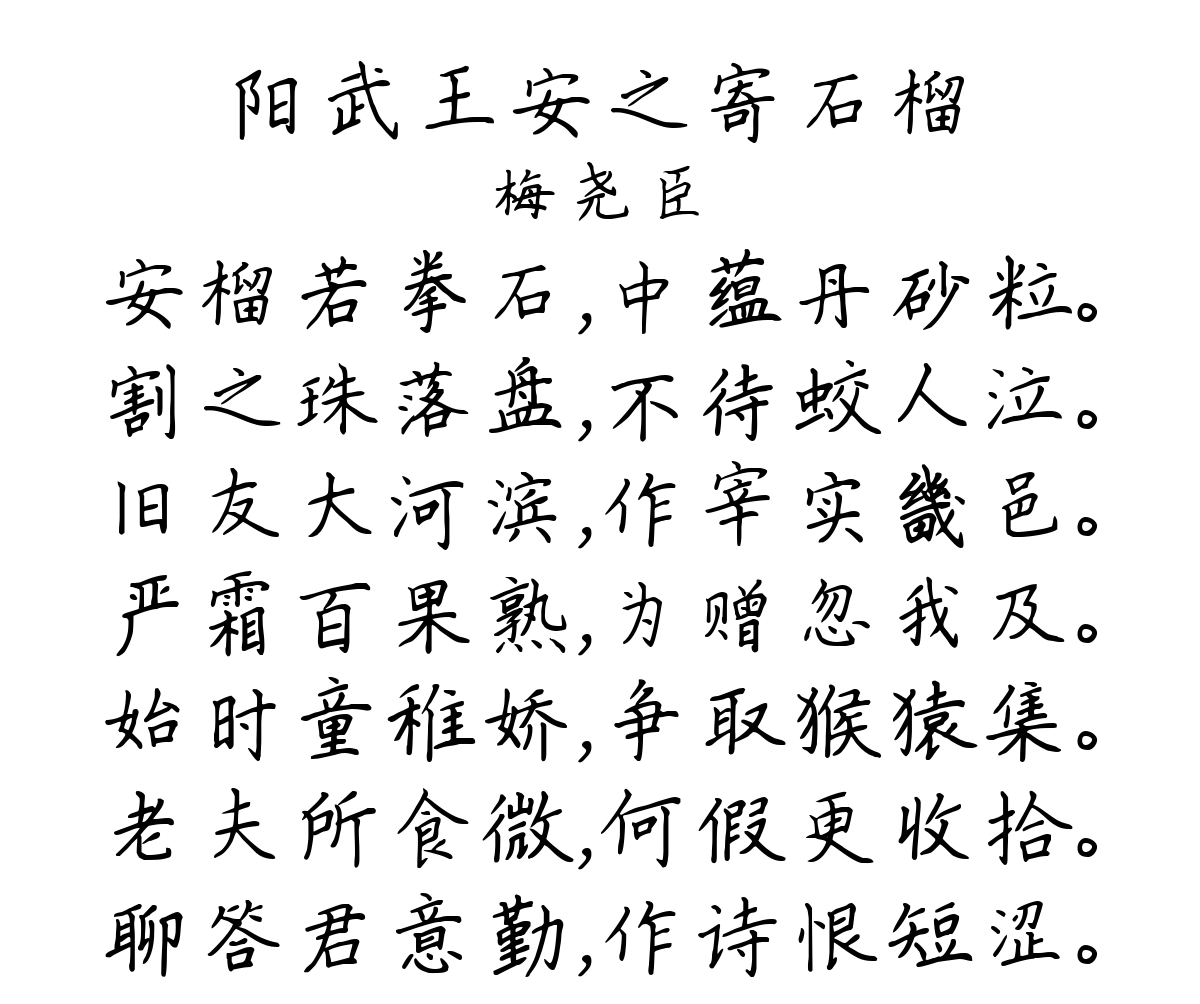 阳武王安之寄石榴
梅尧臣
安榴若拳石,中蕴丹砂粒。
割之珠落盘,不待蛟人泣。
旧友大河滨,作宰实畿邑。
严霜百果熟,为赠忽我及。
始时童稚娇,争取猴猿集。
老夫所食微,何假更收拾。
聊答君意勤,作诗恨短涩。